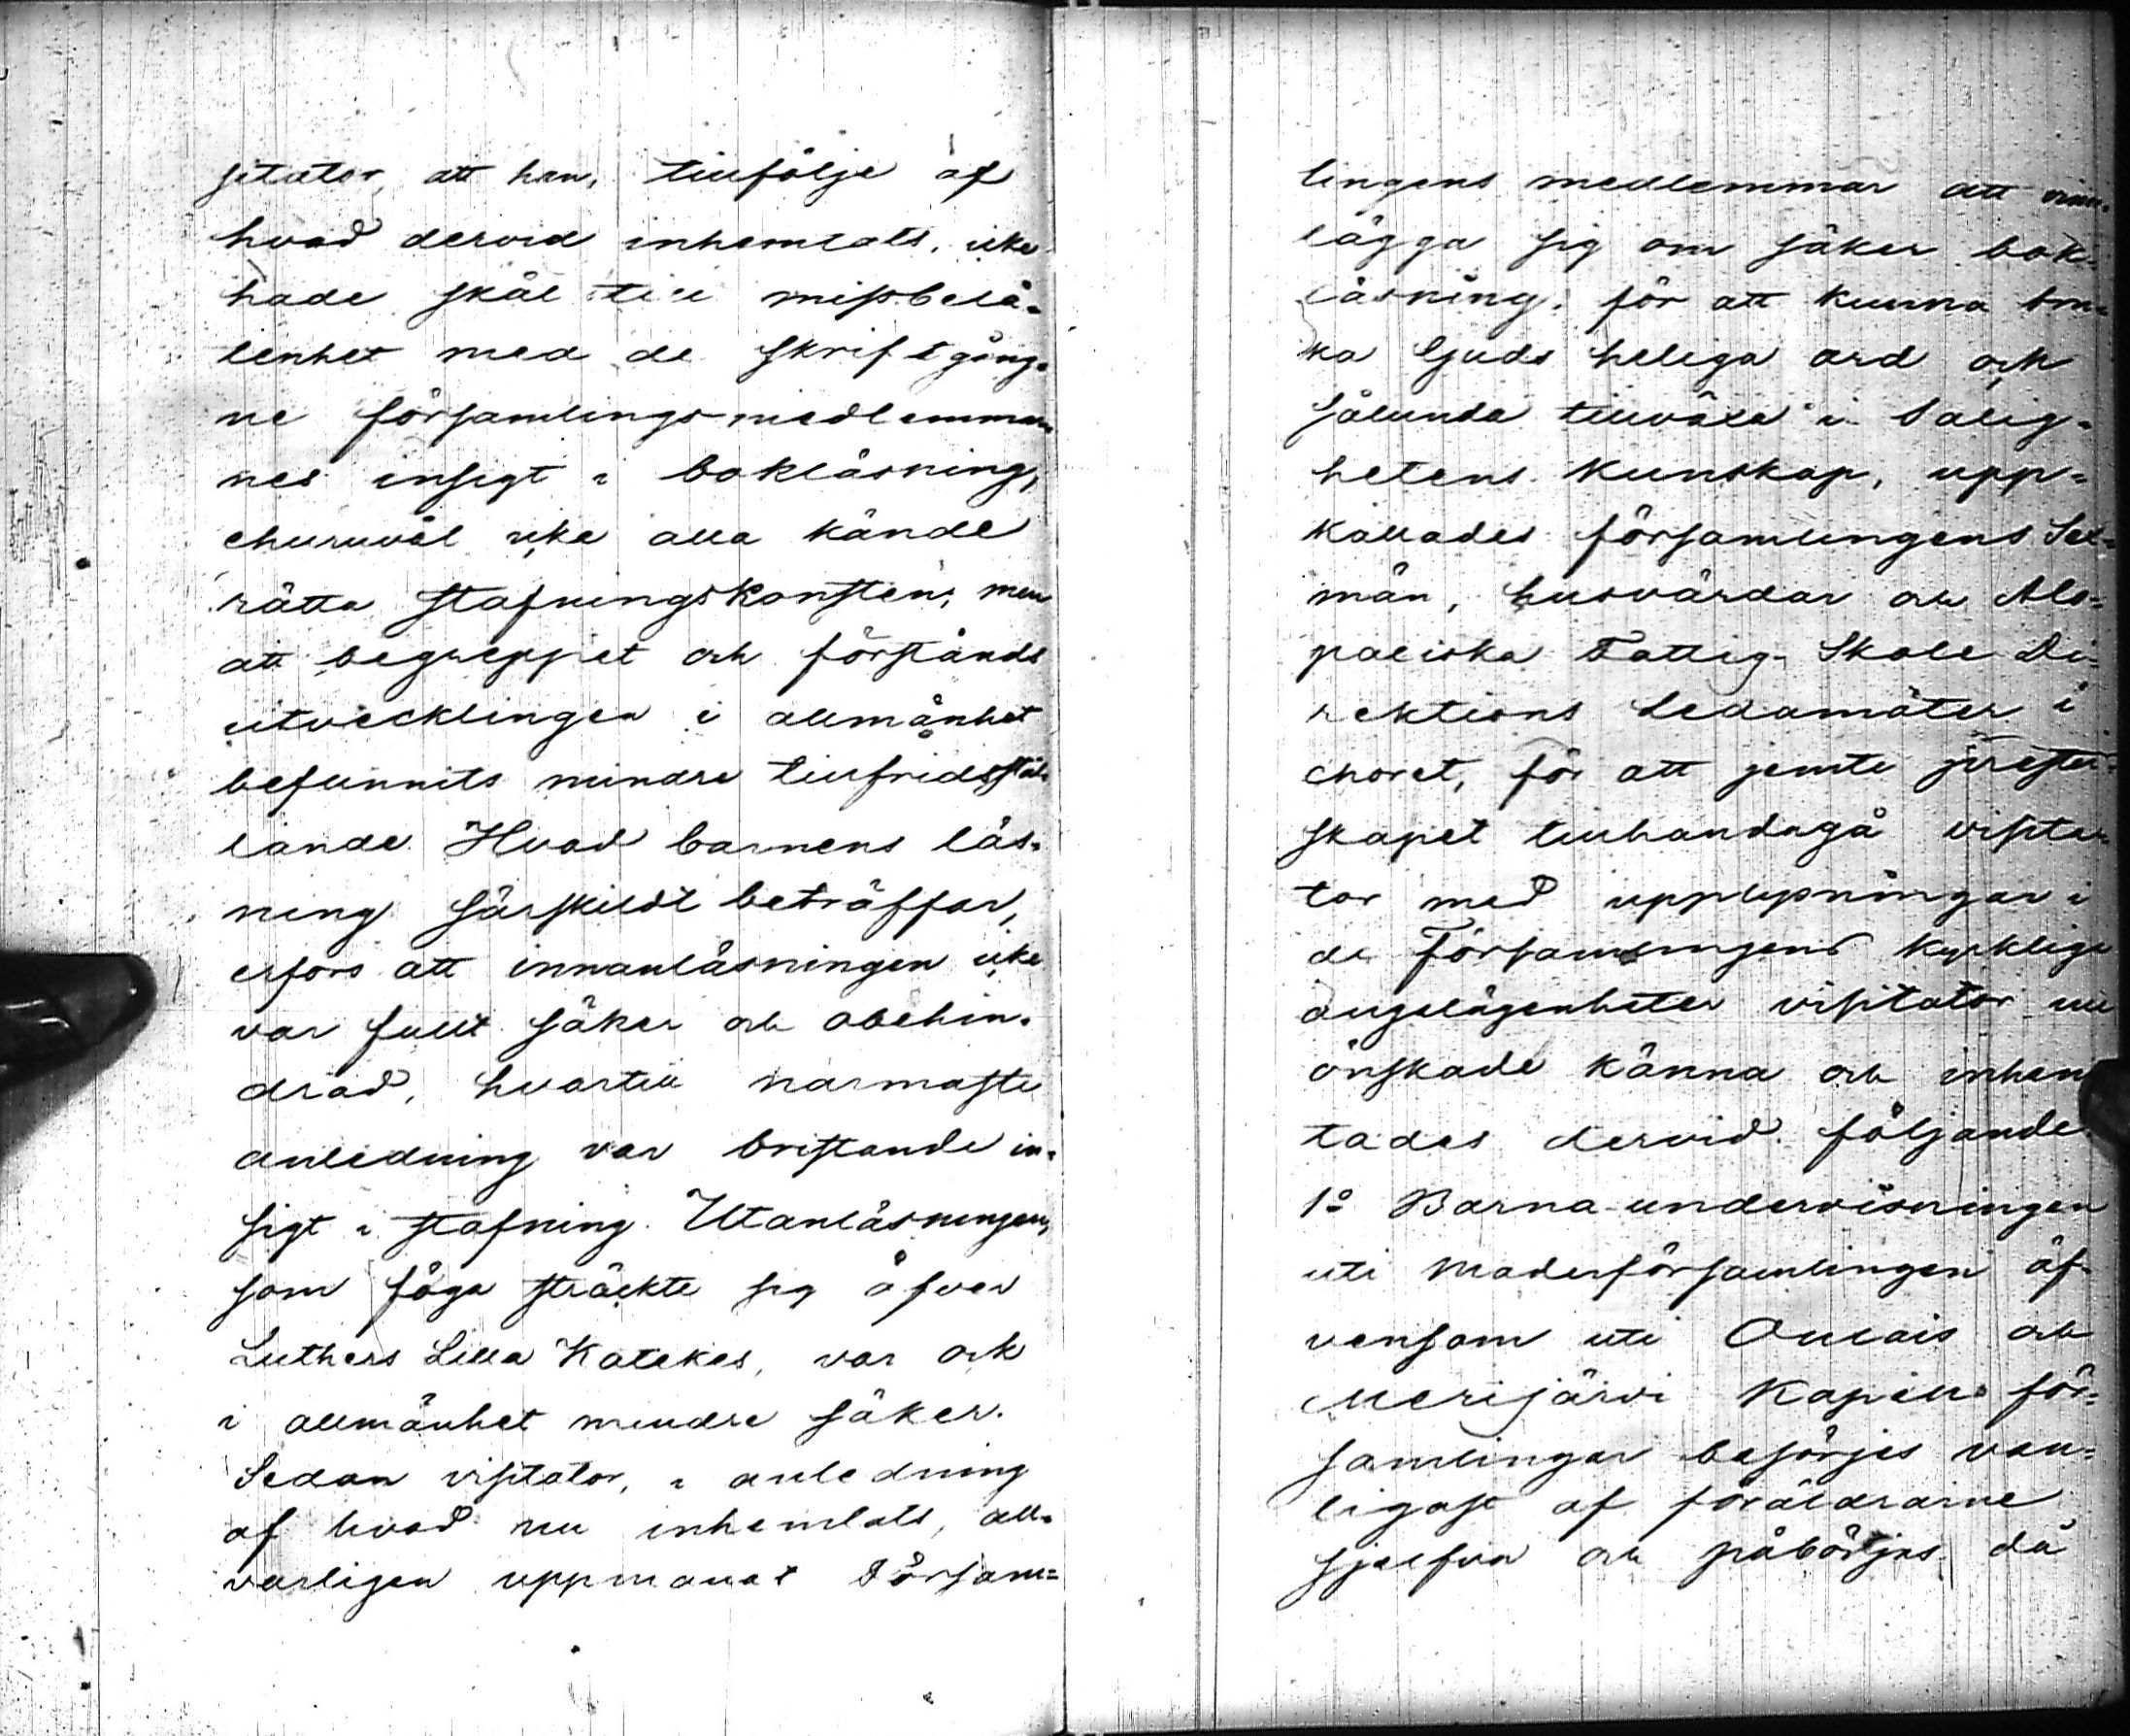 sitator, att han, tillfölje af
hvad dervid inhemtats, icke
hade skäl till missbelå-
tenhet med de skriftgång-
ne församlings-medlemmar-
nes insigt i bokläsning,
churuväl icke alla kände
rätta stafningskonsten, men
att begreppet och förstånds
utvecklingen i allmänhet
befunnits mindre tillfridsstäl-
lande. Hvad barnens läs-
ning särskildt beträffar,
erfors att innanläsningen icke
var fullt säker och obehin-
drad, hvartill närmaste
anledning var bristande in-
sigt i stafning. Utanläsningen,
som föga sträckte sig öfver
Luthers Lilla Katekes, var ock
i allmänhet mindre säker.
Sedan visitator, i anledning
af hvad nu inhemtats, all-
varligen uppmanat Försam-
lingens medlemmar att vinn-
lägga sig om säker bok-
läsning, för att kunna bru-
ka Guds heliga ord och
sålunda tillväxa i Salig-
hetens Kunskap, upp-
kallades församlingens Sex-
män, husvärdar och Alo-
paeiska Fattig-Skole Di-
rektions Ledamöter i
choret, för att jemte prester-
skapet tillhandagå visita-
tor med upplysningar i
de Församlingens kyrkliga
angelägenheter visitator nu
önskade känna och inhem-
tades dervid följande.
1º Barna-undervisningen
uti Moderförsamlingen äf-
vensom uti Oulais och
Merijärvi Kapells för-
samlingar besörjes van-
ligast af föräldrarne
sjelfva och påbörjas då